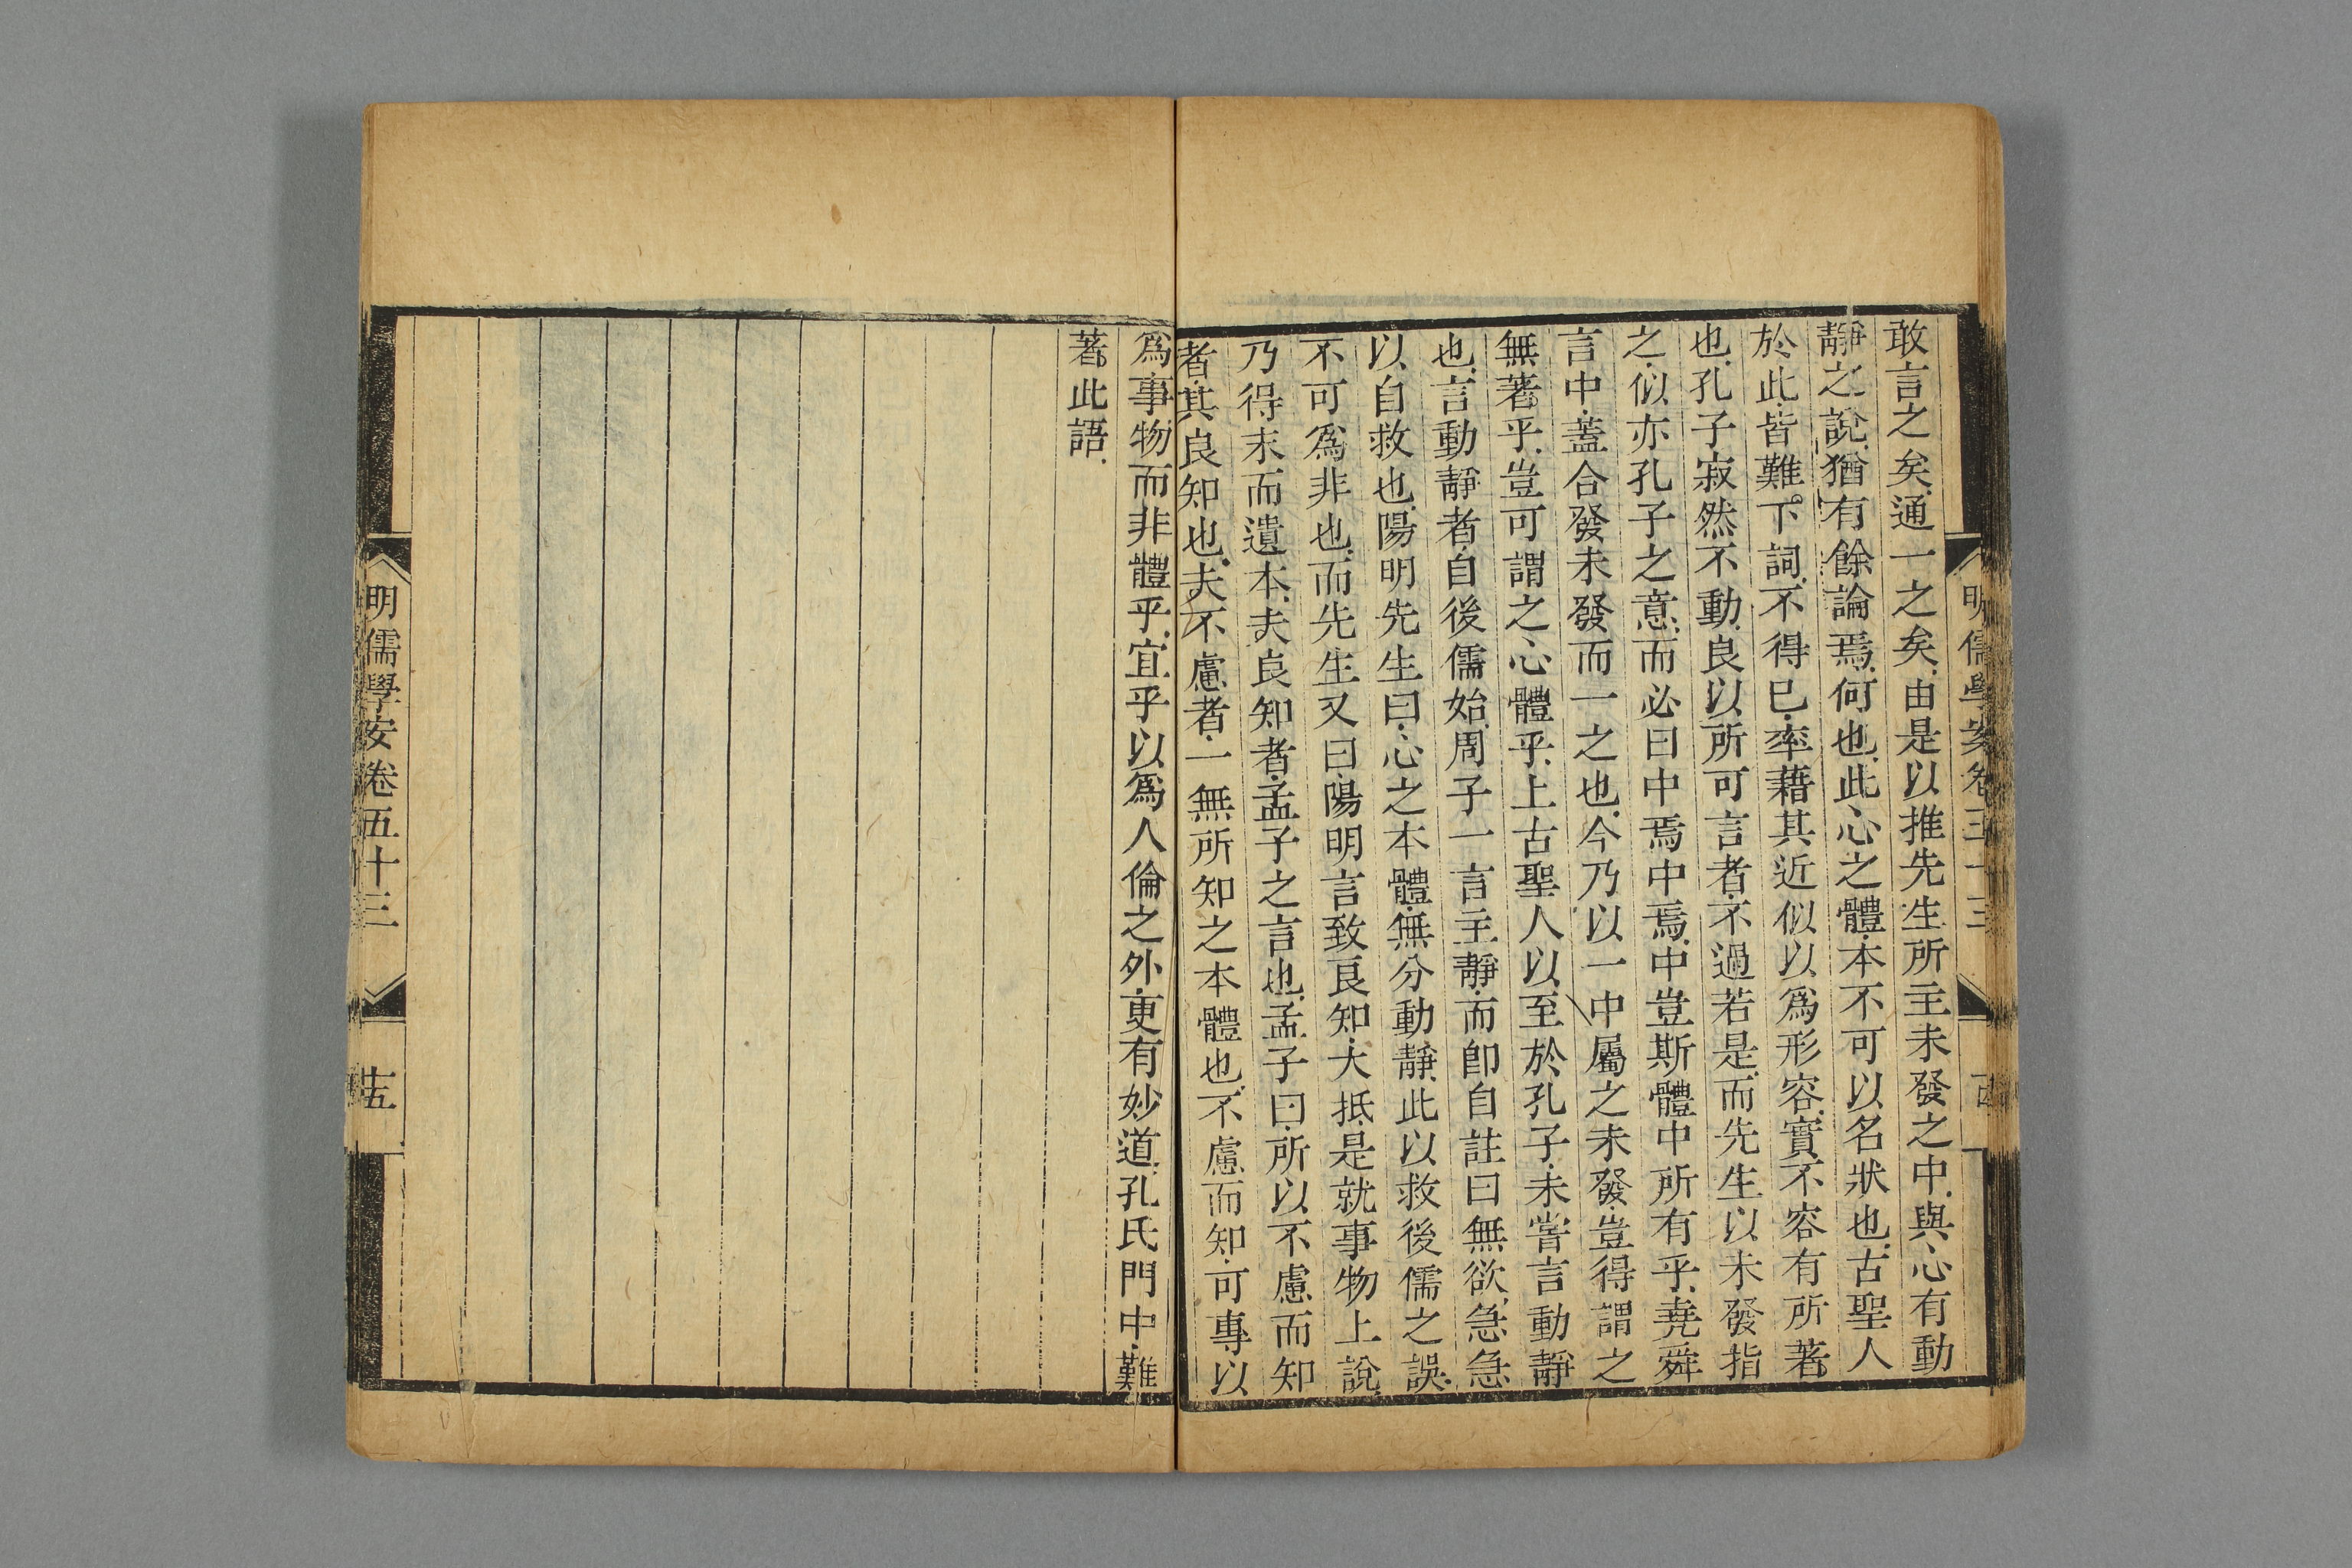 敢言之矣通一之矣由是以推先生所主未發之中與心有動
靜之說猶有餘論焉何也此心之體本不可以名狀也古聖人
於此皆難下詞不得已率藉其近似以爲形容實不容有所著
也孔子寂然不動良以所可言者不過若是而先生以未發指
之似亦孔子之意而必曰中焉中焉中豈斯體中所有乎堯舜
言中蓋合發未發而一之也今乃以一中屬之未發豈得謂之
無著乎豈可謂之心體乎上古聖人以至於孔子未嘗言動靜
也言動靜者自後儒始周子一言主靜而卽自註曰無欲急急
以自救也陽明先生曰心之本體無分動靜此以救後儒之誤
不可爲非也而先生又曰陽明言致良知大抵是就事物上說
乃得末而遺本夫良知者孟子之言也孟子曰所以不慮而知
者其良知也夫不慮者一無所知之本體也不慮而知可專以
爲事物而非體乎宜乎以爲人倫之外更有妙道孔氏門中難
著此語
明儒學案卷五十三
十五